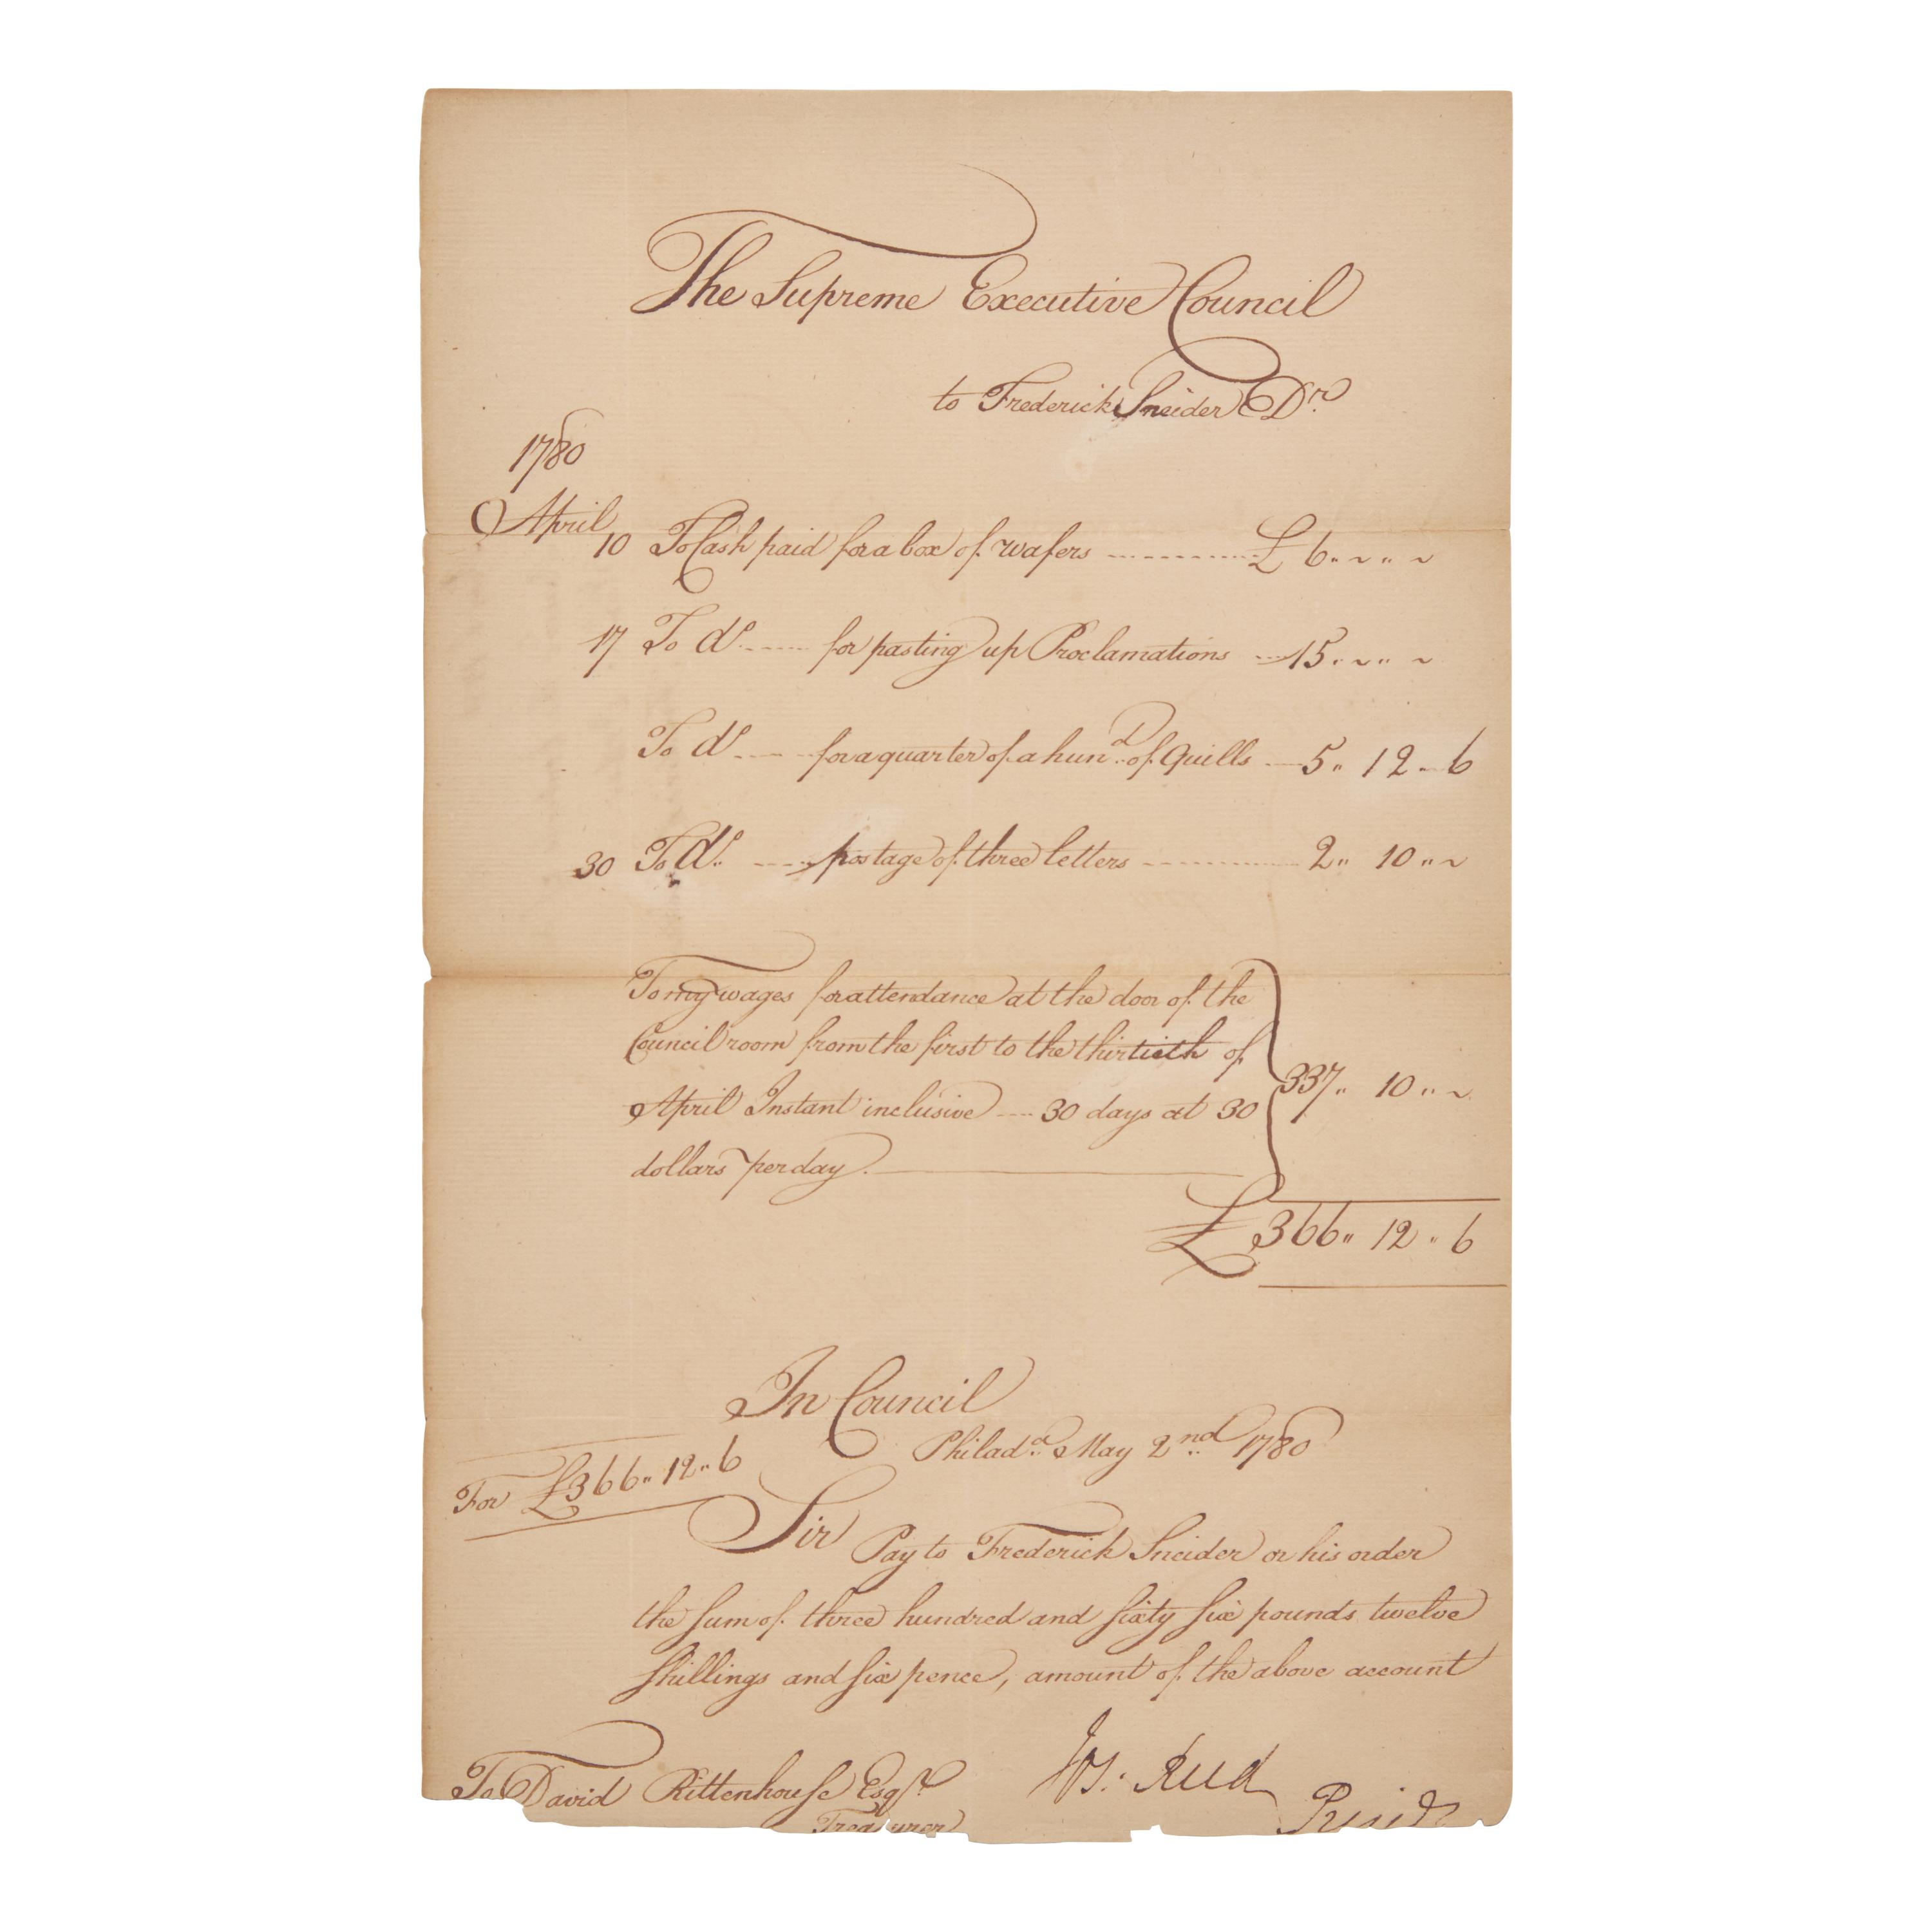 The Supreme Executive Council
to Frederick Sneider Dr.
1780
April
10 To Cash paid for a box of wafers £ 6 .. ~ .. ~
17 To do. for pasting up Proclamations 15 .. ~ .. ~
To do for a quarter of a hund. of Quills 5 .. 12 .. 6
30 To do. postage of three letters 2 .. 10 .. ~
To my wages for attendance at the door of the
Council room from the first to the thirtieth of
April Instant inclusive 30 days at 30
dollars per day.
337 .. 10 .. ~
£ 366 .. 12 .. 6
In Council
Philada. May 2nd. 1780
For £366 .. 12 .. 6
Sir Pay to Frederick Sneider or his order
the sum of three hundred and sixty six pounds twelve
shillings and six pence, amount of the above account
Jos: Reed
Presidt
To David Rittenhouse Esqr.
Treasurer